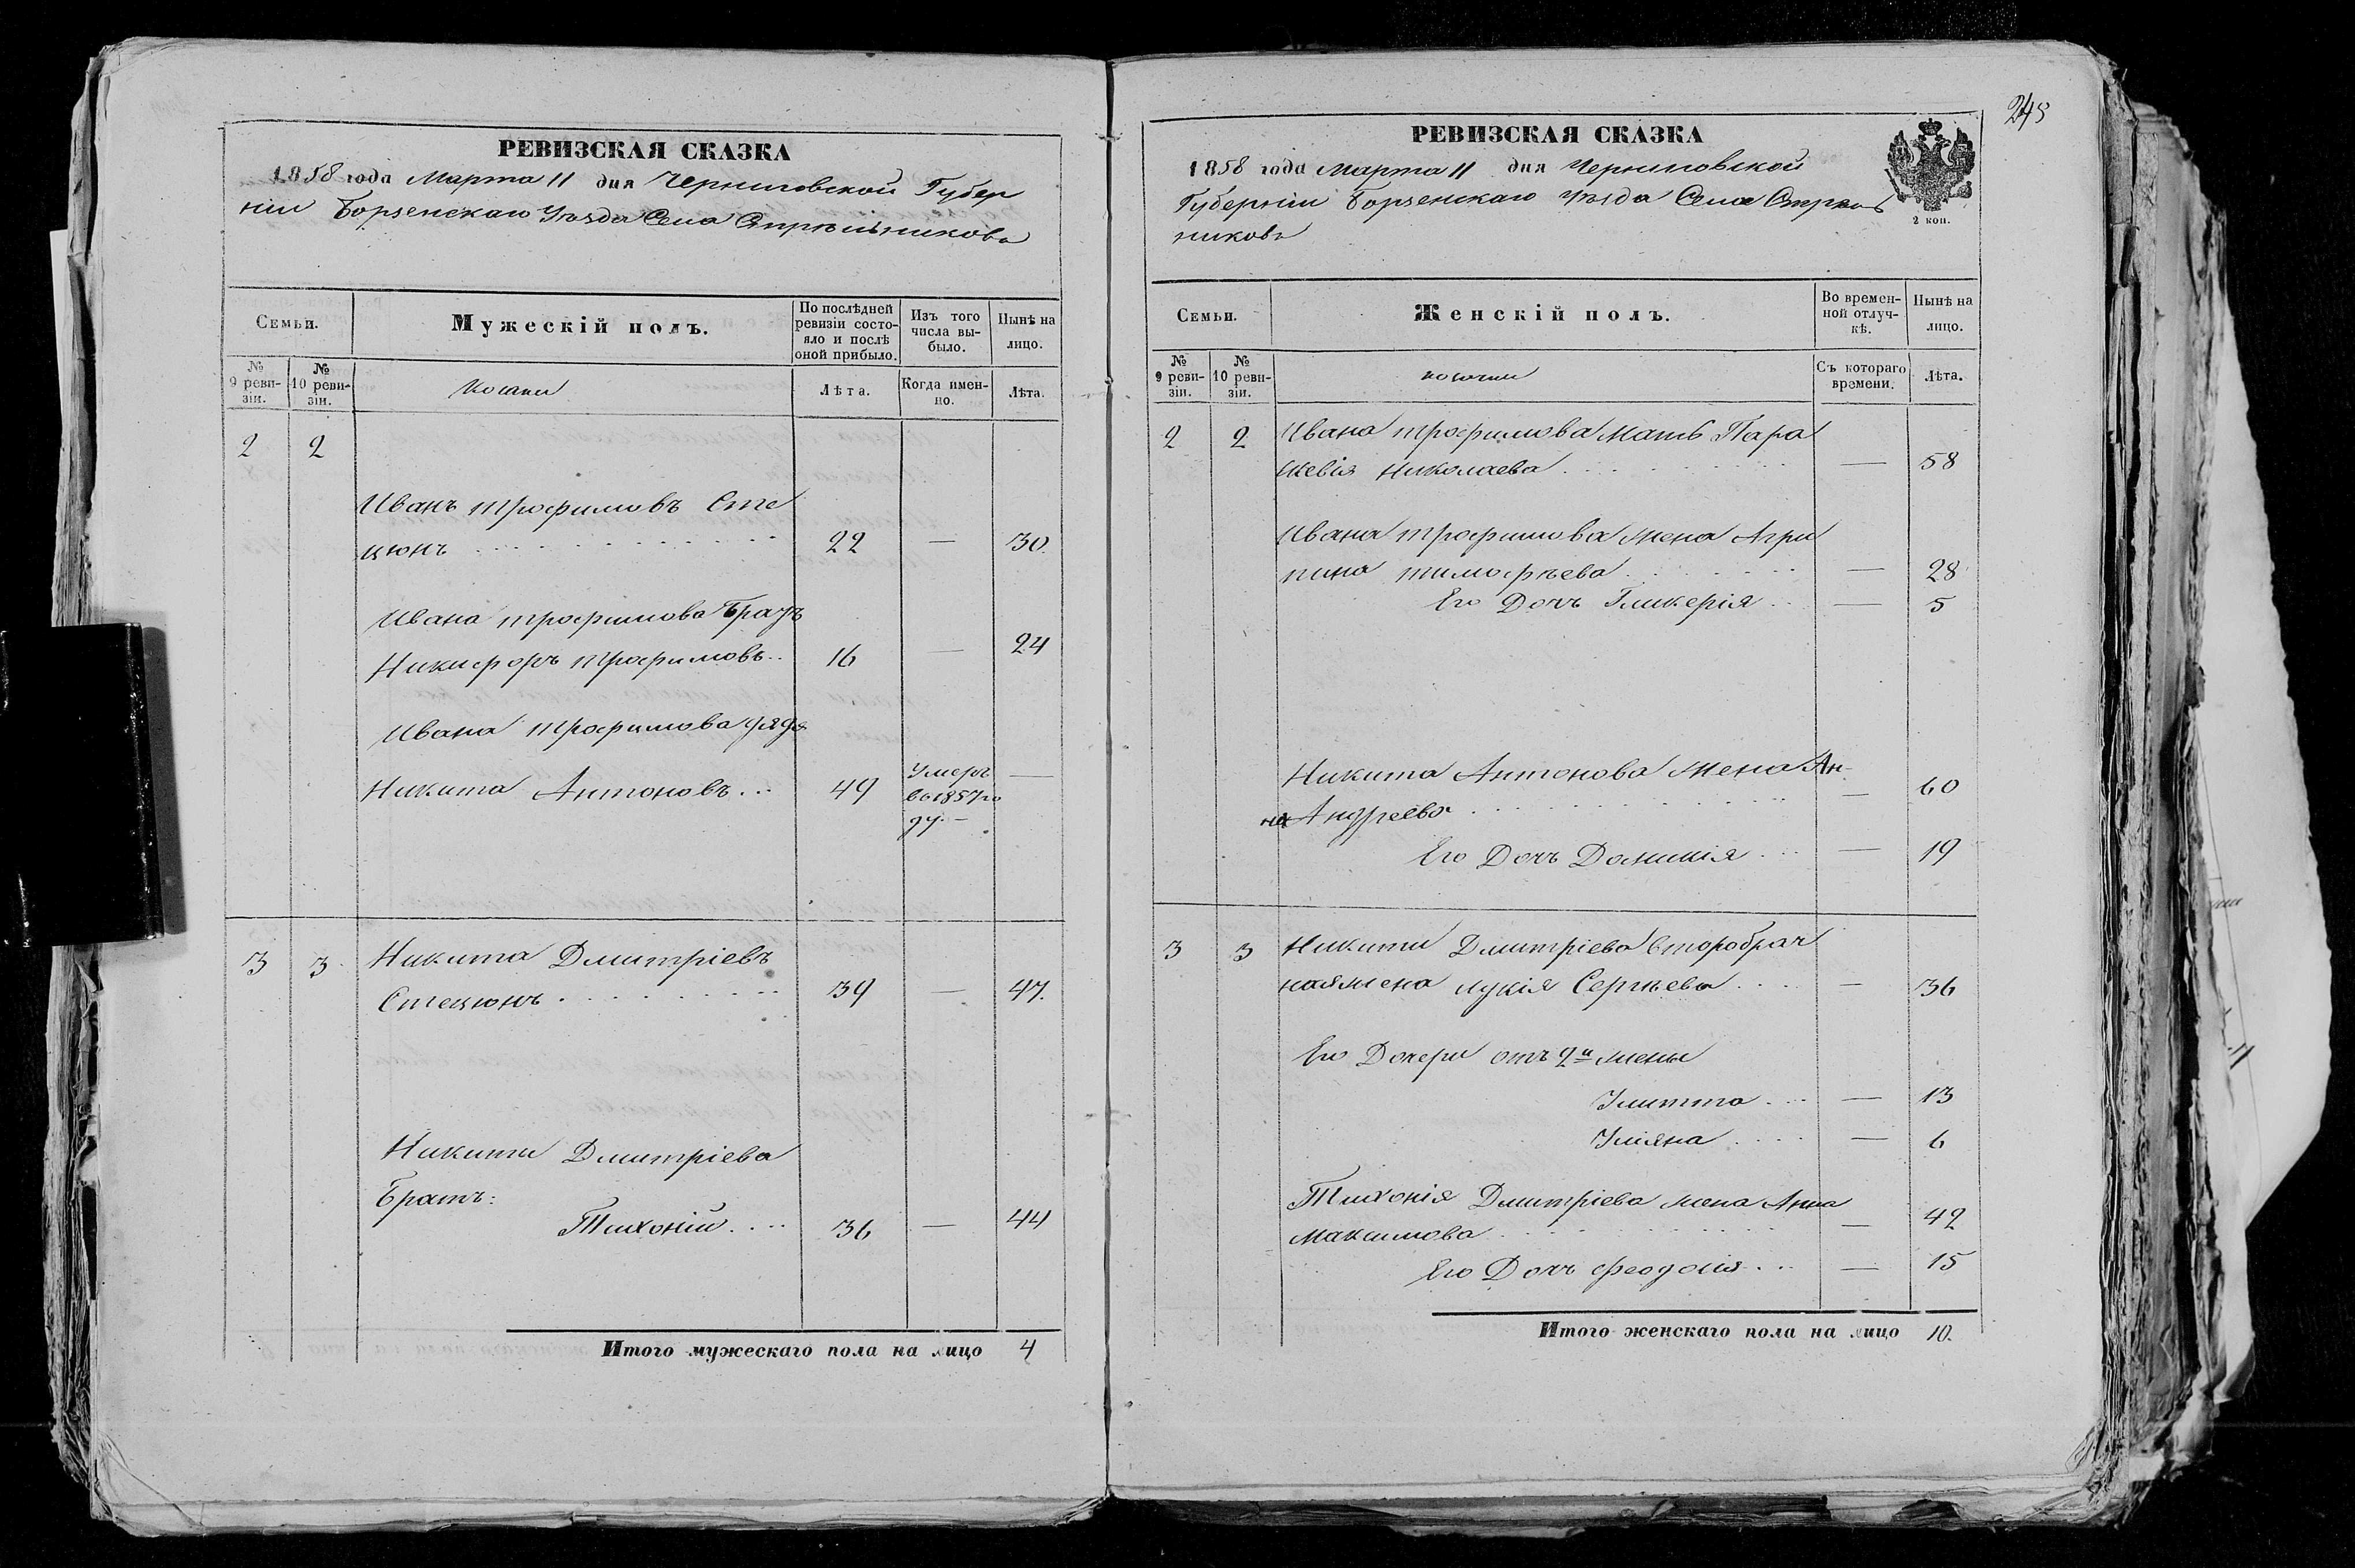 РЕВИЗСКАЯ СКАЗКА
1858 года Марта 11 дня Черниговской Губер
ніи Борзенскаго Уѣзда Села
Семьи.
Мужескій полъ.
По послѣдней ревизіи состояло и послѣ оной прибыло.
Изъ того числа выбыло.
Нынѣ на лицо.
№ 9 ревизіи.
№ 10 ревизіи.
Козаки
Лѣта.
Когда именно.
Лѣта.
2 2
Иванъ Трофимовъ Сте
цюнъ 22 — 30.
Ивана Трофимова Братъ
Никифоръ Трофимовъ 16 — 24
Ивана Трофимова дядя
Никита Антоновъ 49 Умеръ в 1857 го ду. —
3 3 Никита Дмитріевъ
Стецюнъ 39 — 47.
Никиты Дмитріева
Братъ:
Тихоній 36 — 44
Итого мужескаго пола на лицо 4
245
РЕВИЗСКАЯ СКАЗКА
1858 года Марта 11 дня Черниговской
Губерніи Борзенскаго Уѣзда Села
никовъ
2 коп.
Семьи.
Женскій полъ.
Во временной отлучкѣ.
Нынѣ на лицо.
№ 9 ревизіи.
№ 10 ревизіи.
козачки
Съ котораго времени.
Лѣта.
2 2 Ивана Трофимова Мать Пара
skевія Николаева — 58
Ивана Трофимова Жена Агри
пина Тимофѣева — 28
Его Дочь Гликерія — 5
Никита Антонова Жена Ан-
на Андреева — 60
Его Дочь Домникія — 19
3 3 Никиты Дмитріева второбрач
ная жена Лукія Сергѣева — 36
Его Дочери отъ 2й жены
Улитта — 13
Уліяна — 6
Тихонія Дмитріева жена Анна
Максимова — 42
Его Дочь Феодосія — 15
Итого женскаго пола на лицо 10.